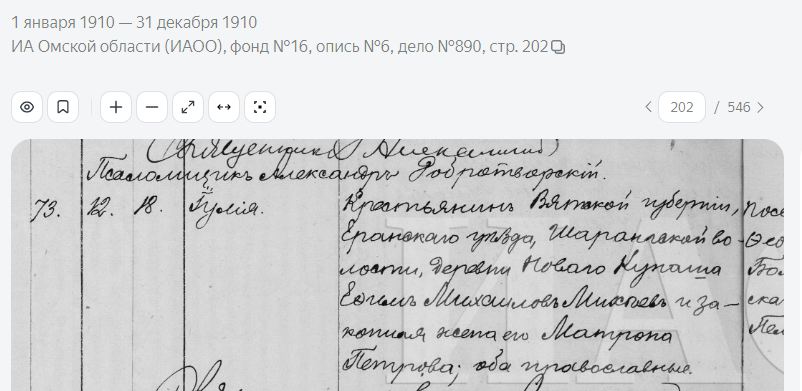 1 января 1910 — 31 декабря 1910
ИА Омской области (ИАОО), фонд №16, опись №6, дело №890, стр. 202
202 / 546
Псаломщикъ Александръ Добротворскій.
73. 12. 18. Іулія. Крестьянинъ Вятской губерніи,
Еранскаго уѣзда, Шарангской во-
лости, деревни Новаго Купаша
Ефимъ Михаиловъ Михѣевъ и за-
конная жена его Матрона
Петрова; оба православные.